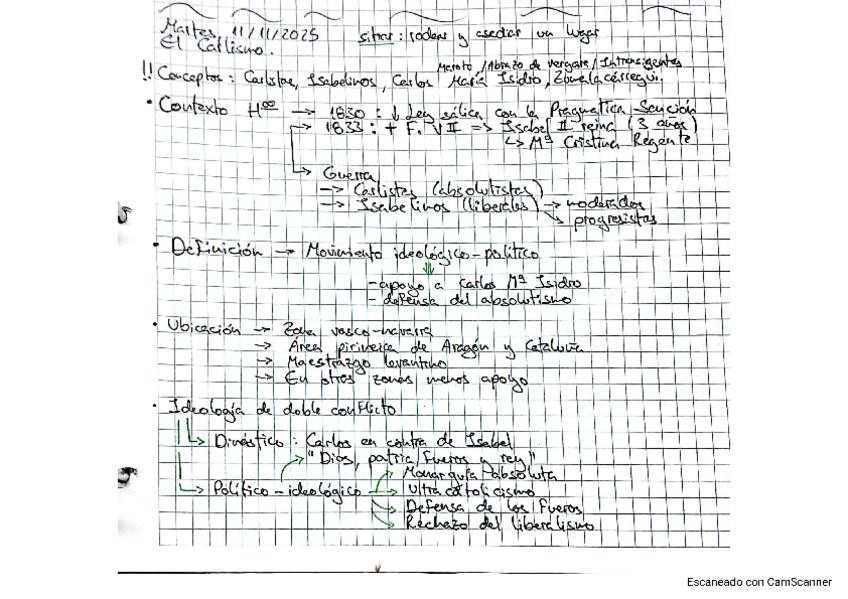 Martes, 11/11/2025 sitiar: rodear y asediar un lugar
El Carlismo.
Maroto / Abrazo de vergara / Intransigentes
!! Conceptos: Carlistas, Isabelinos, Carlos María Isidro, Zumalacárregui.
• Contexto Hco → 1830: ↓ Ley sálica con la Pragmática Sanción
→ 1833: + F. VII => Isabel II reina (3 años)
↳ Mª Cristina Regente
↳ Guerra
→ Carlistas (absolutistas)
→ Isabelinos (liberales) → moderados
↘ progresistas
• Definición → Movimiento ideológico-político
⇓
- apoyo a Carlos Mª Isidro
- defensa del absolutismo
• Ubicación → Zona vasco-navarra
→ Área pirineica de Aragón y Cataluña
→ Maestrazgo levantino
→ En otras zonas menos apoyo
• Ideología de doble conflicto
↳ Dinástico: Carlos en contra de Isabel
"Dios, patria, fueros y rey"
Monarquía absoluta
↳ Político-ideológico → Ultracatolicismo
Defensa de los Fueros
Rechazo del liberalismo
Escaneado con CamScanner